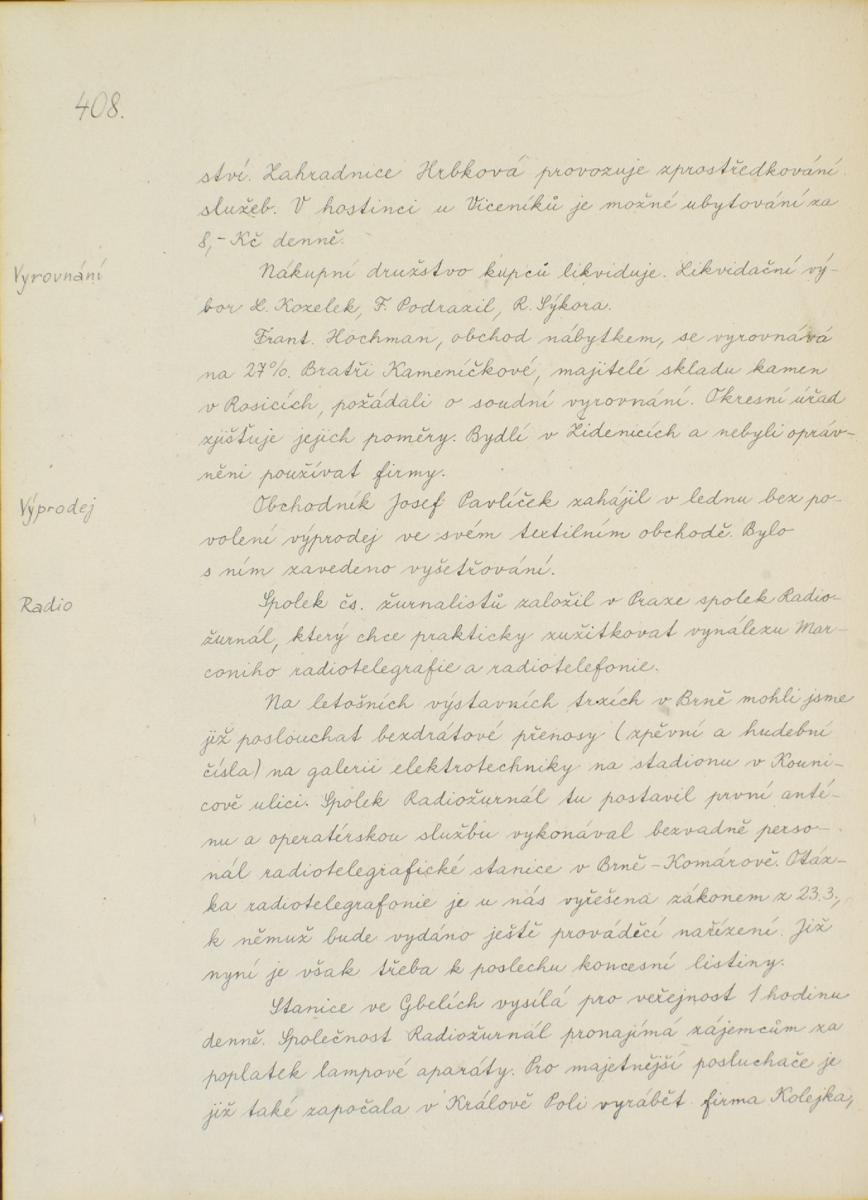 408.
ství. Zahradnice Hrbková provozuje zprostředkování
služeb. V hostinci u Viceníků je možné ubytování za
8,- Kč denně.
Vyrovnání
Nákupní družstvo kupců likviduje. Likvidační vý-
bor L. Kozelek, F. Podrazil, R. Sýkora.
Frant. Hochman, obchod nábytkem, se vyrovnává
na 27%. Bratři Kameníčkové, majitelé skladu kamen
v Rosicích, požádali o soudní vyrovnání. Okresní úřad
zjišťuje jejich poměry. Bydlí v Židenicích a nebyli opráv-
něni používat firmy.
Výprodej
Obchodník Josef Pavlíček zahájil v lednu bez po-
volení výprodej ve svém textilním obchodě. Bylo
s ním zavedeno vyšetřování.
Radio
Spolek čs. žurnalistů založil v Praze spolek Radio-
žurnál, který chce prakticky zužitkovat vynálezu Mar-
coniho radiotelegrafie a radiotelefonie.
Na letošních výstavních trzích v Brně mohli jsme
již poslouchat bezdrátové přenosy (zpěvní a hudební
čísla) na galerii elektrotechniky na stadionu v Kouni-
cově ulici. Spolek Radiožurnál tu postavil první anté-
nu a operatérskou službu vykonával bezvadně perso-
nál radiotelegrafické stanice v Brně - Komárově. Otáz-
ka radiotelegrafonie je u nás vyřešena zákonem z 23.3.,
k němuž bude vydáno ještě prováděcí nařízení. Již
nyní je však třeba k poslechu koncesní listiny.
Stanice ve Gbelích vysílá pro veřejnost 1 hodinu
denně. Společnost Radiožurnál pronajímá zájemcům za
poplatek lampové aparáty. Pro majetnější posluchače je
již také započala v Králově Poli vyrábět firma Kolejka,